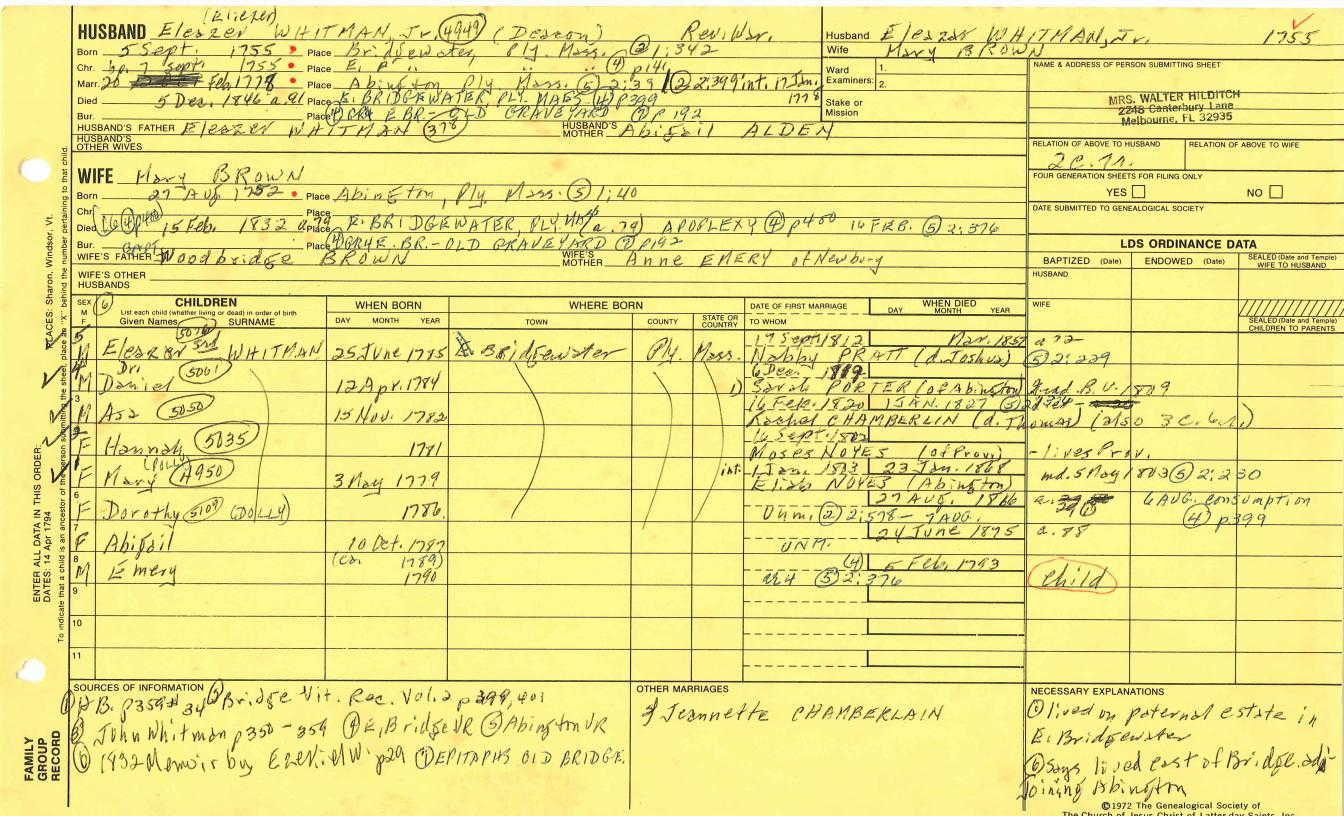 (Eliezer)
HUSBAND Eleazer WHITMAN, Jr. 4949 (Deacon) Rev. War.
Born 5 Sept. 1755 Place Bridgewater, Ply. Mass. ② 1:342
Chr. bp. 7 Sept. 1755 Place E. " " " ④ p141
Marr. 20 Feb 1778 Place Abington Ply Mass. ⑤ 2:39 ② 2:399 int. 17 Jan. 1778
Died 5 Dec. 1846 a. 91 Place E. BRIDGEWATER, PLY. MASS ④ p399
Bur. Place GR4 E. BR.- OLD GRAVEYARD ⑦ p192
HUSBAND'S FATHER Eleazer WHITMAN 378 HUSBAND'S MOTHER Abigail ALDEN
HUSBAND'S OTHER WIVES
WIFE Mary BROWN
Born 27 Aug 1752 Place Abington, Ply. Mass. ⑤ 1:40
Chr. Place
Died 16 ④ p400 15 Feb. 1832 a 79 Place E. BRIDGEWATER, PLY. MASS (a. 79) APOPLEXY ④ p400 16 FEB. ⑤ 2:376
Bur. Place GR4 E. BR.- OLD GRAVEYARD ⑦ p192
WIFE'S FATHER CAPT. Woodbridge BROWN WIFE'S MOTHER Anne EMERY of Newbury
WIFE'S OTHER HUSBANDS
Husband Eleazar WHITMAN, Jr. 1755
Wife Mary BROWN
Ward Examiners: 1.
2.
Stake or Mission
NAME & ADDRESS OF PERSON SUBMITTING SHEET
MRS. WALTER HILDITCH
2248 Canterbury Lane
Melbourne, FL 32935
RELATION OF ABOVE TO HUSBAND RELATION OF ABOVE TO WIFE
2c.
FOUR GENERATION SHEETS FOR FILING ONLY
YES NO
DATE SUBMITTED TO GENEALOGICAL SOCIETY
LDS ORDINANCE DATA
BAPTIZED (Date) ENDOWED (Date) SEALED (Date and Temple) WIFE TO HUSBAND
HUSBAND
WIFE
SEALED (Date and Temple) CHILDREN TO PARENTS
SEX M F ⑥ CHILDREN WHEN BORN WHERE BORN DATE OF FIRST MARRIAGE WHEN DIED
List each child (whether living or dead) in order of birth
Given Names SURNAME DAY MONTH YEAR TOWN COUNTY STATE OR COUNTRY TO WHOM DAY MONTH YEAR
5 M Eleazer 3rd 5076 WHITMAN 25 June 1785 E. Bridgewater Ply. Mass. 17 Sept. 1812 Mar. 1857 a 72
Nabby PRATT (d. Joshua) ⑤ 2:229
4 M Dr. Daniel 5061 12 Apr. 1784 6 Dec.
1) Sarah PORTER (of Abington) Grad. B.U. 1809
3 M Asa 5050 15 Nov. 1782 16 Feb. 1820 1 JAN. 1827 ⑤
Rachel CHAMBERLIN (d. Thomas) (also 3c.
2 F Hannah 5035 1781 16 Sept. 1802
Moses NOYES (of Prov.) - lives Prov.
1 F Mary (POLLY) 4950 3 May 1779 int. 1 Jan. 1803 23 Jan. 1868
Eliab NOYES (Abington) md. 5 May 1803 ⑤ 2:230
6 F Dorothy 5109 (DOLLY) 1786. 27 AUG. 1816 6 AUG. consumption ④ p399
Unm. ② 2:578 - 7 AUG.
7 F Abigail 10 Oct. 1787 24 June 1875 a. 88
UNM.
8 M Emery (ca. 1789) 1790 ④ 5 Feb. 1793 child
GR4 ⑤ 2:376
9
10
11
PLACES: Sharon, Windsor, Vt.
ENTER ALL DATA IN THIS ORDER:
DATES: 14 Apr 1794
To indicate that a child is an ancestor of the person submitting the sheet, place an "X" behind the number pertaining to that child.
FAMILY GROUP RECORD
SOURCES OF INFORMATION
① HB. p359 # 34 ② Bridge Vit. Rec. Vol. 2 p 399, 401
③ John Whitman p350 - 359 ④ E. Bridge VR ⑤ Abington VR
⑥ 1832 Memoir by Ezekiel W. p29 ⑦ EPITAPHS OLD BRIDGE.
OTHER MARRIAGES
4 Jeannette CHAMBERLAIN
NECESSARY EXPLANATIONS
lived on paternal estate in
E. Bridgewater
⑥ says lived east of Bridge. ad-
joining Abington
©1972 The Genealogical Society of
The Church of Jesus Christ of Latter-day Saints, Inc.